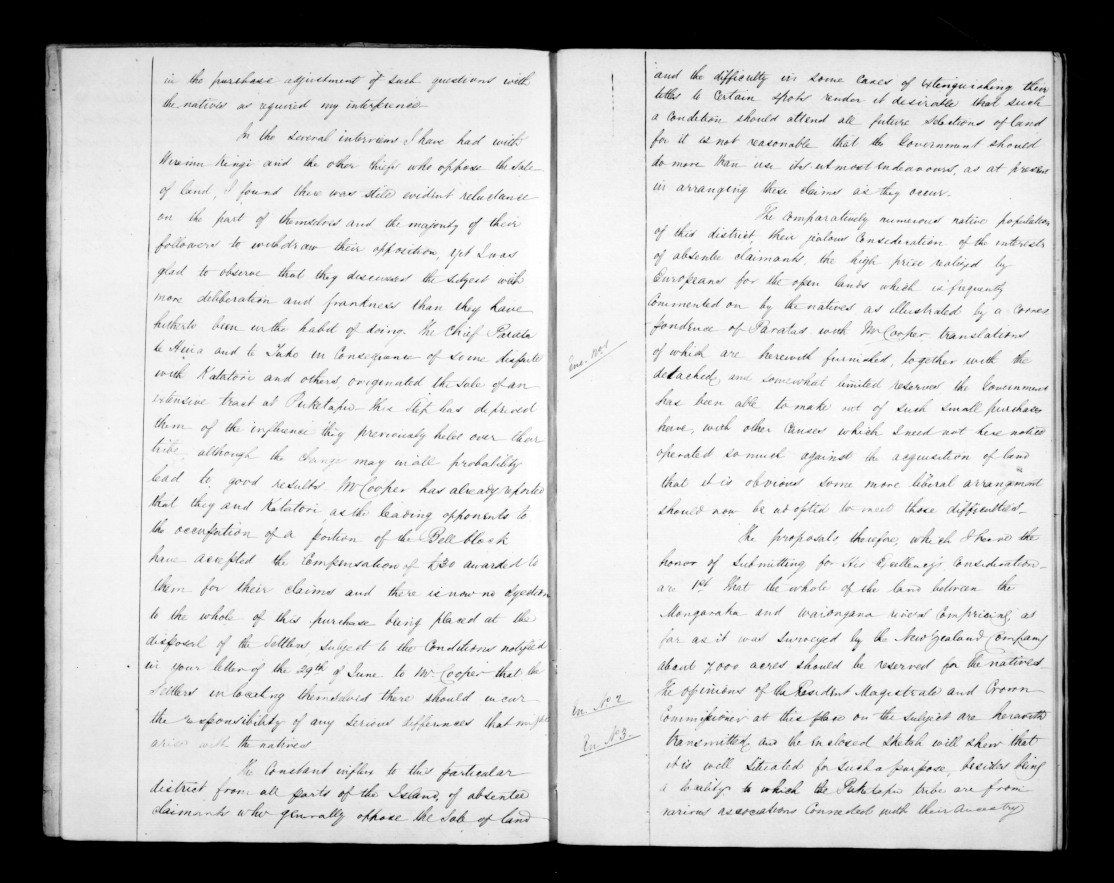 in the purchase adjustment of such questions with
the natives as required my interference
In the several interviews I have had with
Wiremu Kingi and the other chiefs who oppose the Sale
of land, I found there was still evident reluctance
on the part of themselves and the majority of their
followers to withdraw their opposition, yet I was
glad to observe that they discussed the subject with
more deliberation and frankness than they have
hitherto been in the habit of doing. The Chief
te Huia and te Tako in Consequence of some dispute
with Katatori and others, originated the Sale of an
extensive tract at Puketapu this step has deprived
them of the influence they previously held over their
tribe, although the change may in all probability
lead to good results. Mr Cooper has already reported
that they and Katatori as the leading opponents to
the occupation of a portion of the Bell block
have accepted the Compensation of £30 awarded to
them for their claims and there is now no objection
to the whole of this purchase being placed at the
disposal of the Settlers subject to the Conditions notified
in your letter of the 29th of June to Mr Cooper that the
Settlers in locating themselves there should incur
the responsibility of any serious differences that might
arise with the natives
The Constant influx to this particular
district from all parts of the Island, of absentee
claimants who generally oppose the Sale of land
and the difficulty in some Cases of extinguishing their
titles to Certain spots render it desirable that such
a Condition should attend all future Selections of land
for it is not reasonable that the Government should
do more than use its utmost endeavours, as at present
in arranging these claims as they occur.
The Comparatively numerous native population
of this district, their jealous Consideration of the interests
of absentee claimants, the high price realized by
Europeans for the open lands which is frequently
Commented on by the natives as illustrated by a Corres
pondence of Tarata with Mr Cooper, translations
Enc. No 1
of which are herewith furnished, together with the
detached and somewhat limited reserves the Government
has been able to make out of such small purchases
here, with other Causes which I need not here notice
operated so much against the acquisition of land
that it is obvious some more liberal arrangement
should now be adopted to meet those difficulties.
The proposals, therefore, which I have the
honor of Submitting for His Excellency's Consideration
are 1st. That the whole of the land between the
Mangaraka and waiongana rivers Comprising, as
far as it was surveyed by the New Zealand Company
about 7,000 acres should be reserved for the natives
The opinions of the Resident Magistrate and Crown
En. No 2
Commissioner at this place on the subject are herewith
En. No 3
transmitted, and the enclosed sketch will shew that
it is well situated for such a purpose, besides being
a locality to which the Puketapu tribe are from
various associations Connected with their ancestry